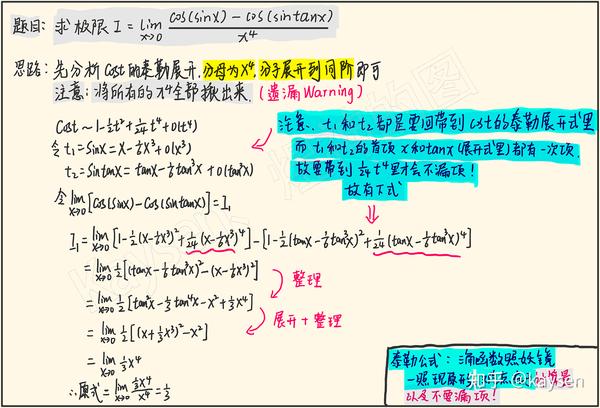 题目: 求极限 I = lim x→0 (cos(sinx) - cos(sintanx)) / x⁴
思路: 先分析 cost 的泰勒展开, 分母为x⁴, 分子展开到同阶即可
注意: 将所有的x⁴全部揪出来. (遗漏Warning)
cost ~ 1-½t²+1/24 t⁴+o(t⁴)
令t₁=sinx=x-⅙x³+o(x³)
t₂=sintanx=tanx-⅙tan³x+o(tan³x)
注意、t₁和t₂都是要回带到cost的泰勒展开式里
而t₁和t₂的首项x和tanx(展开式里)都有一次项.
故要带到1/24 t⁴里才会不漏项!
故有下式
令 lim x→0 [cos(sinx)-cos(sintanx)]=I₁
I₁= lim x→0 [1-½(x-⅙x³)²+1/24(x-⅙x³)⁴]-[1-½(tanx-⅙tan³x)²+1/24(tanx-⅙tan³x)⁴]
= lim x→0 ½[(tanx-⅙tan³x)²-(x-⅙x³)²]
整理
= lim x→0 ½[tan²x-⅓tan⁴x-x²+⅓x⁴]
展开+整理
= lim x→0 ½[(x+⅓x³)²-x²]
= lim x→0 ⅓x⁴
∴原式= lim x→0 ⅓x⁴/x⁴=⅓
泰勒公式: 函数照妖镜
一照现原形
以及不要漏项!
知乎 @kaysen